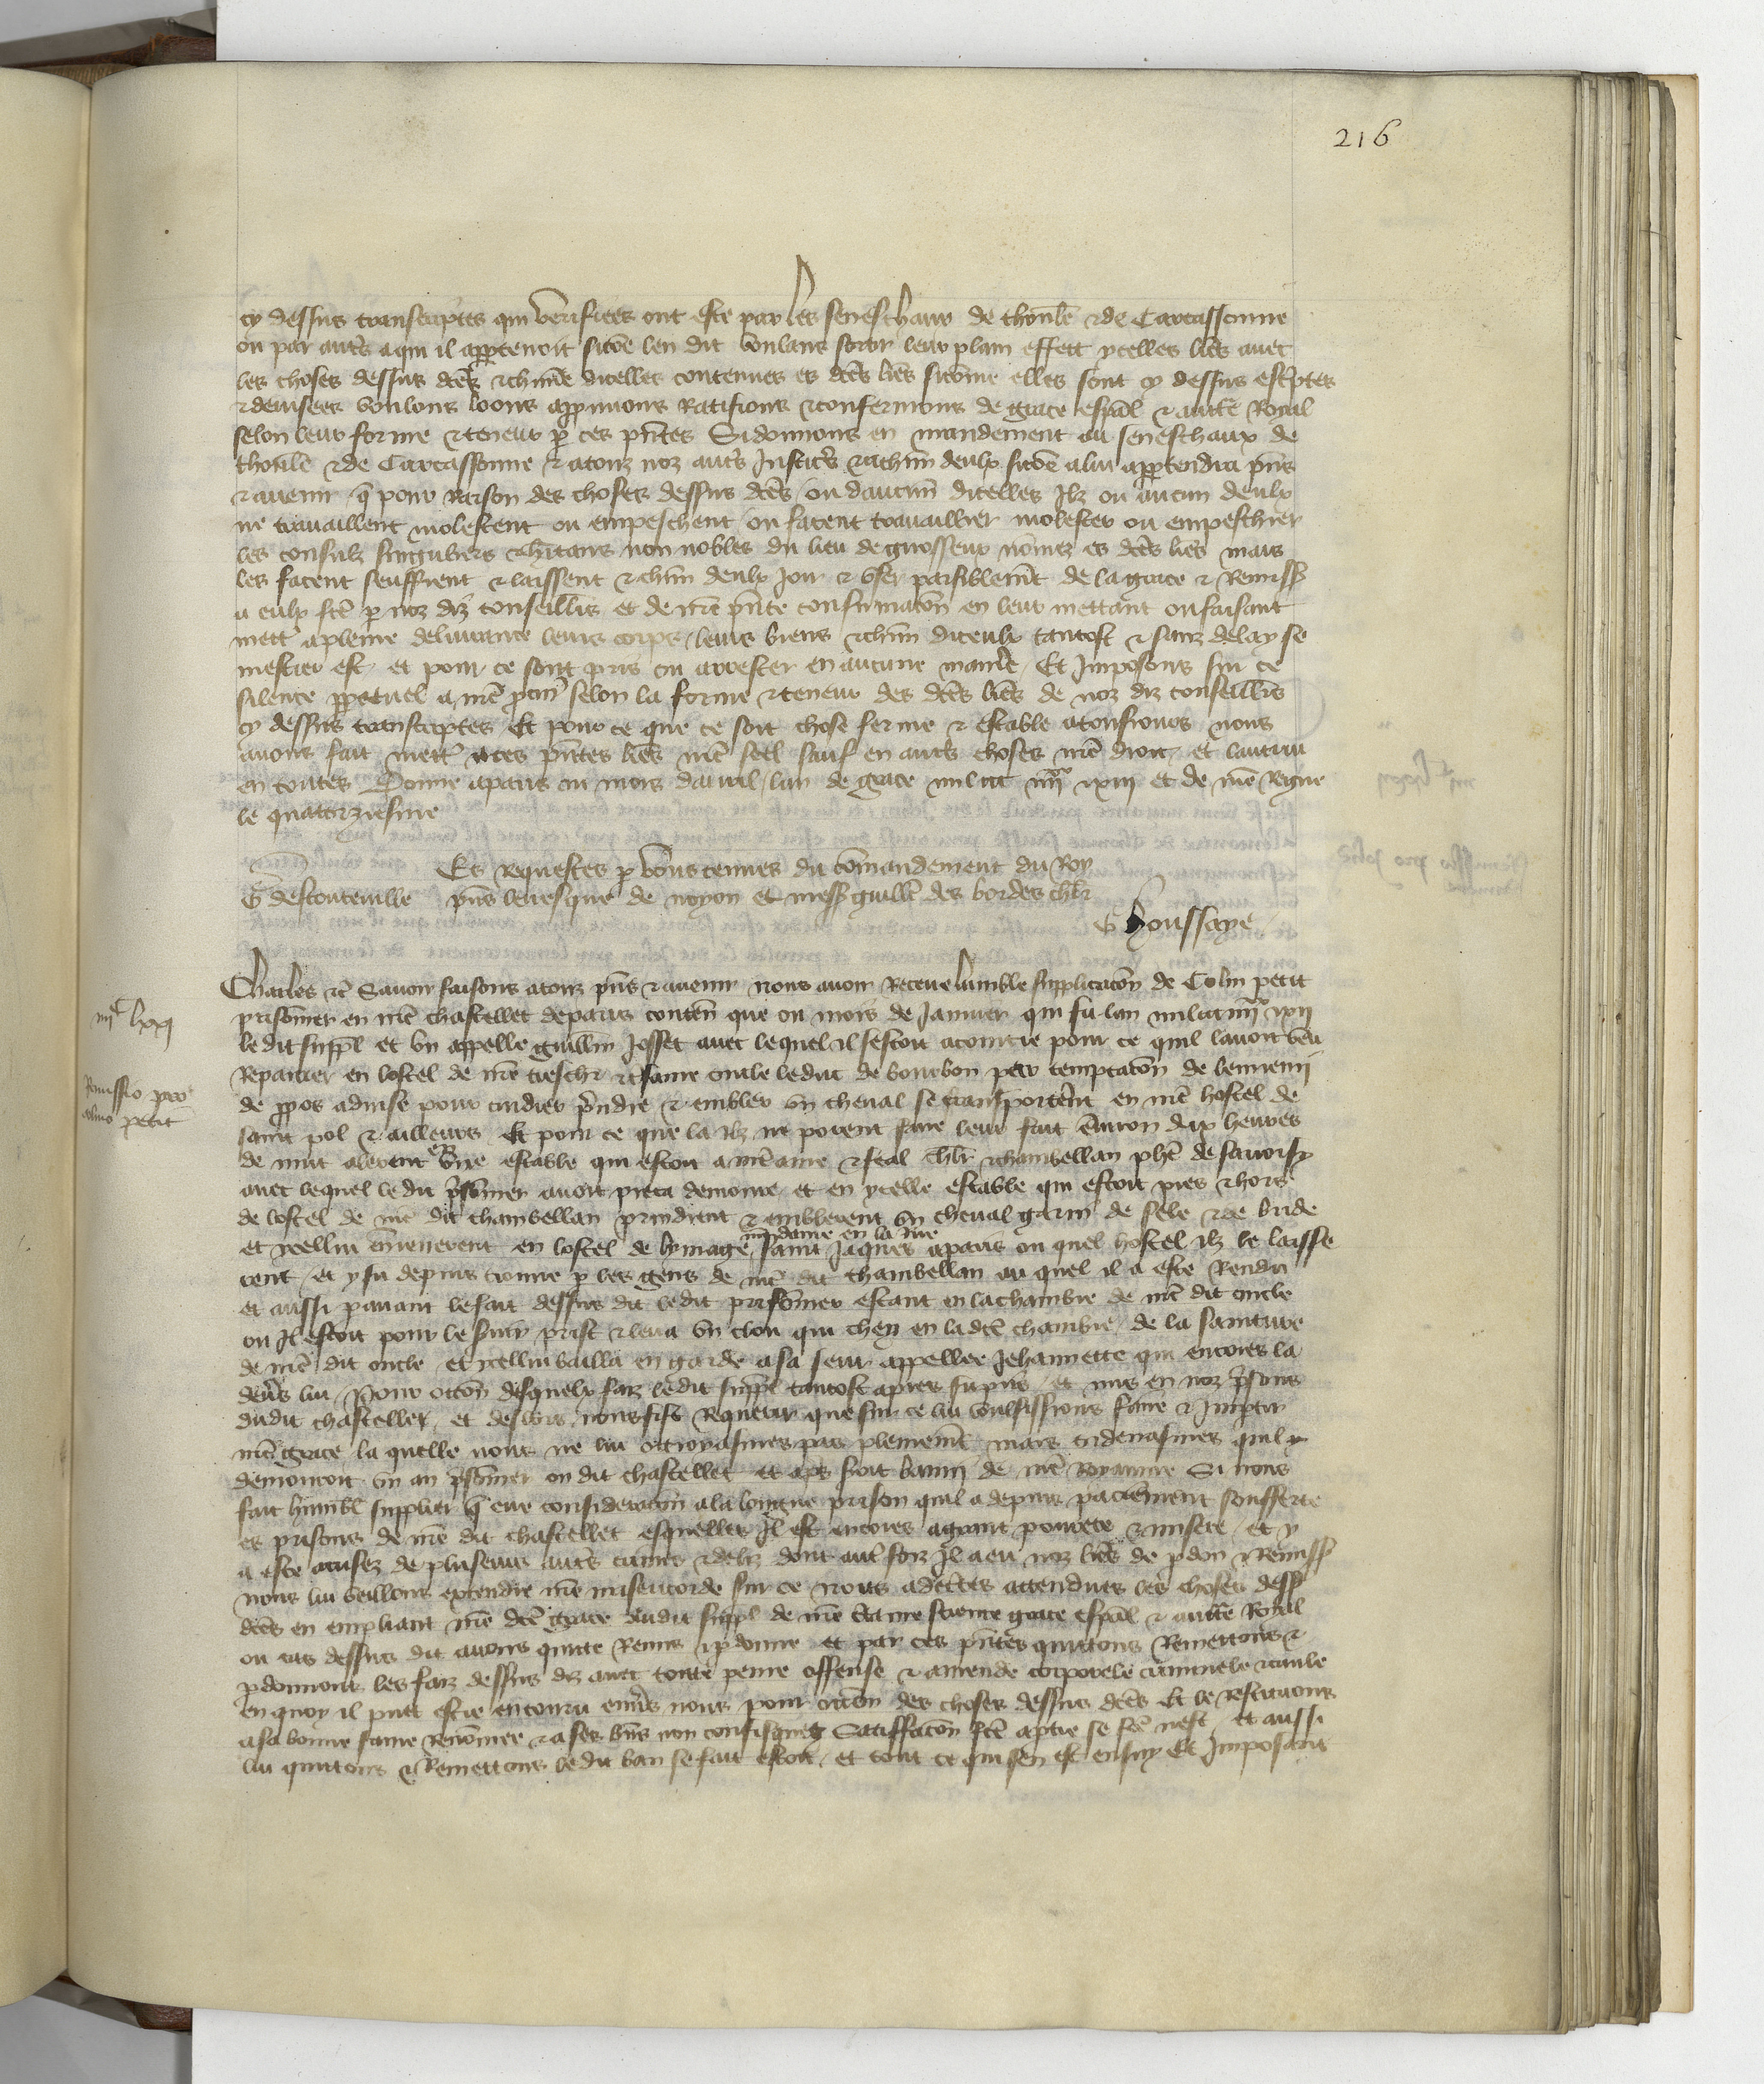 216
cy dessus transcriptes qui verifiees ont este par les seneschaux de thoulse & de Carcassonne
ou par autrs a qui il appartenoit sicõe len dit voulans sortir leur plain effect ycelles lrẽs avec
les choses dessus dcẽs & chũne dicelles contenues es dcẽs lrẽs sicõme elles sont cy dessus escriptes
& devisees voulons loons approuuons Ratifions & confermons de grace espãl & auctẽ Royal
selon leur forme & teneur p ces pñtes Si donnons en mandement au seneschaux de
thoulse & de Carcassonne & a touz noz autrs Justicirs & a chũn deulx sicõe a lui appartendra pñs
& avenir q̃ pour raison des choses dessus dcẽs ou daucun dicelles Ilz ou aucun deulx
ne travaillent molestent ou empeschent ou facent travaillier molester ou empeschier
les consulz singuliers & hĩtans non nobles du lieu de nõmez es dcẽs lrẽs mais
les facent seuffrent & laissent & chũn deulx Joir & user paisiblemt de la grace & Remiss
a eulx fctẽ p noz diz conseilliers et de nrẽ pñte confirmacõn en leur mettant ou faisant
mettr a pleine delivrance leurs corps leurs biens & chũn diceulx tantost & sanz delay se
mestier est et pour ce sont pris ou arrester en aucune manire Et Imposons sur ce
silence ppetuel a nrẽ pcur selon la forme & teneur des dcẽs lrẽs de noz diz conseilliers
cy dessus transcriptes Et pour ce que ce soit chose ferme & estable a tousiours nous
avons fait mettr a ces pñtes lrẽs nrẽ seel sauf en autrs choses nrẽ droit et lautrui
en toutes Donne a paris ou mois davril lan de grace mil ccc iiiixx xiiij et de nrẽ Regne
le quatorziesme
Es requestes p vous tenues du cõmandement du Roy
G destouteville pñs levesque de noyon et mess guillẽ des bordes chlr
G houssaye
iiijc lxxj
Charles &c Savoir faisons a touz pñs & avenir nous avoir Receue lumble supplicacõn de Colin petit
prisõnier en nrẽ chastellet de paris conten que ou mois de Janvier qui fu lan mil ccc iiiixx xij
ledit suppl et un appelle guillemin Josset avec lequel il sestoit acointie pour ce quil lavoit veu
Remissio pro
colino petit
Repairier en lostel de nrẽ treschr & tsame oncle le duc de bourbon par temptacõn de lennemi
de ppos advise pour cuidier prendre & embler un cheval se transporterent en nrẽ hostel de
saint pol & ailleurs Et pour ce que la ilz ne porent faire leur fait environ dix heures
de nuit alerent en une estable qui estoit a nrẽ ame & feal chlr & chambellan phẽ de savoisy
avec lequel ledit prisõnier avoit pieca demoure et en ycelle estable qui estoit pres & hors
de lostel de nrẽ dit chambellan prindrent & emblerent un cheval garni de sele & de bride
et icellui emmenerent en lostel de lymage nrẽ dame en la rue saint Jaques a paris ou quel hostel ilz le laisse
rent et y fu depuis trouve p les gens de nrẽ dit chambellan au quel il a este Rendu
et aussi pavant le fait dessus dit ledit prisõnier estant en la chambre de nrẽ dit oncle
ou Il estoit pour le servir prist & leva un clou qui chey en ladcẽ chambre de la sainture
de nrẽ dit oncle et icellui bailla en garde a sa seur appellee Jehannette qui encores la
devrs lui Pour occõn desquelx faiz ledit suppl tantost apres fu pris et mis en noz prisons
dudit chastellet et deslors nous fist Requerir que sur ce lui voulsissions faire & Impartir
nrẽ grace la quelle nous ne lui octroyasmes pas plenemt mais ordenasmes quil y
demourroit un an prisõnier ou dit chastellet et aps soit banni de nrẽ Royaume Si nous
fait humbl supplier q̃ eue consideracõn a la longue prison quil a depuis paciẽment soufferte
es prisons de nrẽ dit chastellet esquelles Il est encores a grant povrete & misere et y
a este accusez de plusieurs autrs crimes & deliz dont autrfoiz Il a eu noz lrẽs de pdon & Remiss
nous lui veillons extendre nrẽ misericorde sur ce Nous adcẽtes attendues les choses dess
dcẽs en empliant nrẽ dcẽ grace audit suppl de nrẽ ctaine science grace espãl & auctẽ Royal
ou cas dessus dit avons quitte Remis & pdonne et par ces pñtes quittons Remettons &
pdonnons les faiz dessus diz avec toute peine offense & amende corporele criminele & civile
en quoy il puet estre encouru envrs nous pour occõn des choses dessus dcẽs Et le Restituons
a sa bonne fame Renõmee & a ses bñs non confisquez Satiffacõn fctẽ a ptie se fctẽ nest Et aussi
lui quittons & Remettons ledit ban se fait estoit et tout ce qui sen est ensuy Et Imposant